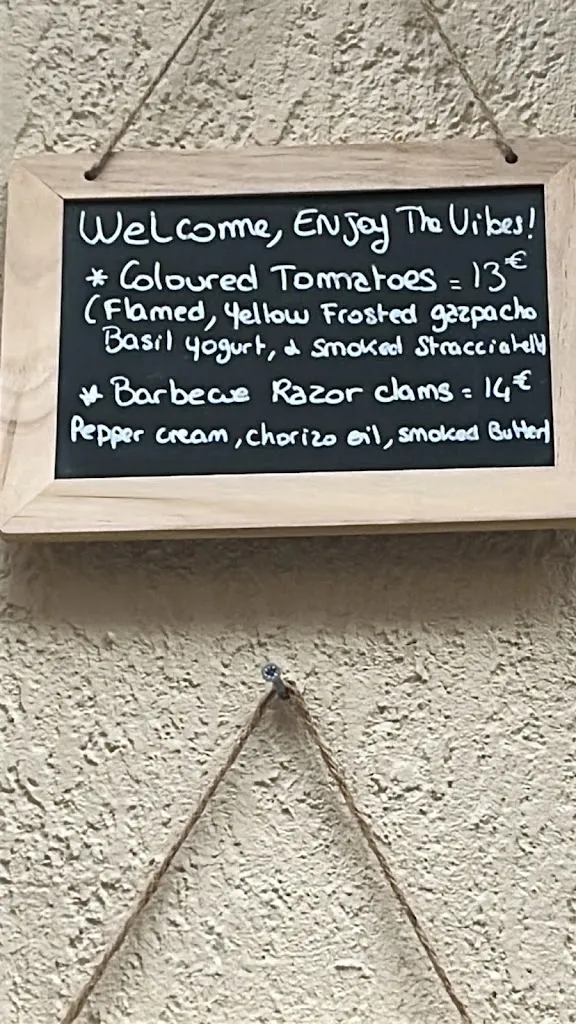 Welcome, Enjoy The Vibes!
* Coloured Tommatoes = 13€
(Flamed, Yellow Frosted gazpacho
Basil yogurt, & smoked Stracciatella
* Barbecue Razor clams = 14€
Pepper cream, chorizo oil, smoked Butter)